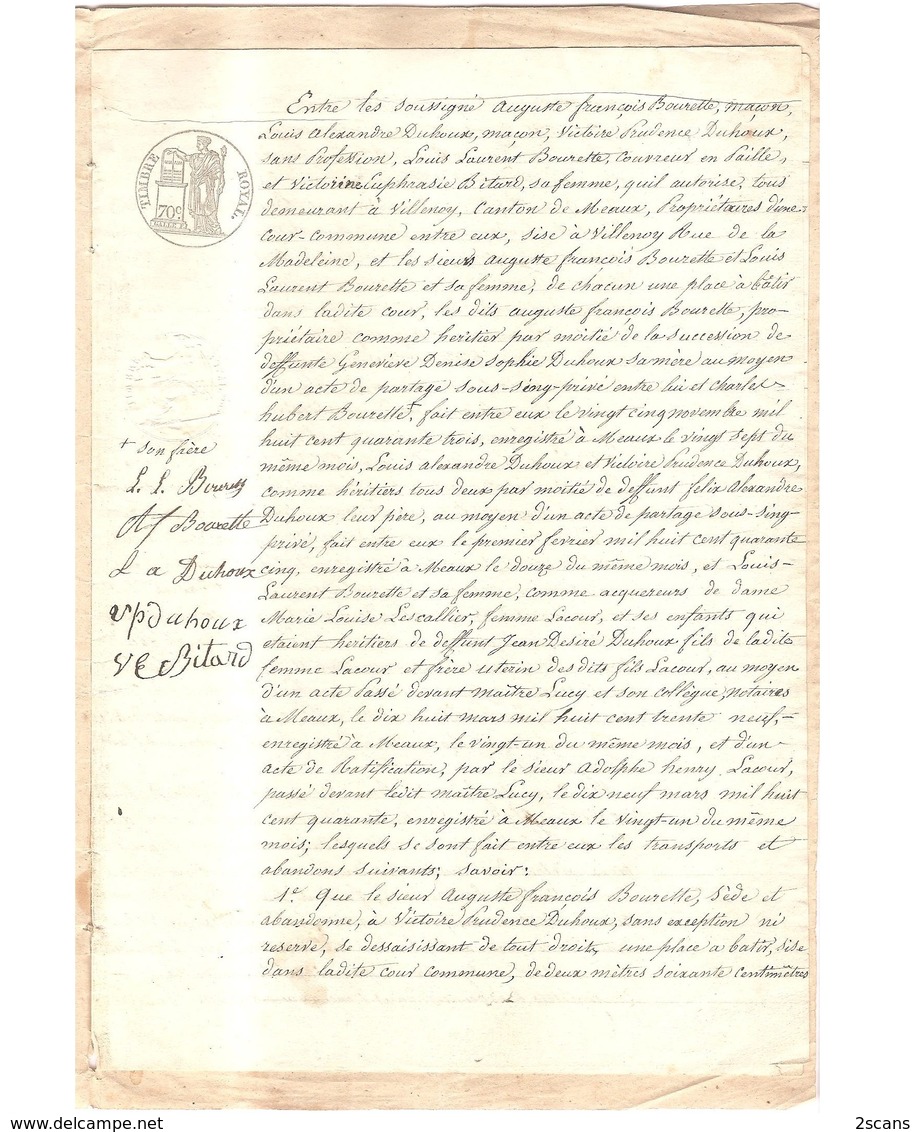 TIMBRE ROYAL
70c.
Entre les soussigné Auguste françois Bourette, maçon,
Louis Alexandre Duhoux, maçon, Victoire Prudence Duhoux,
sans Profession, Louis Laurent Bourette, Couvreur en Paille,
et Victorine Euphrasie Bitard, sa femme, quil autorise, tous
demeurant à Villenoy, Canton de Meaux, Propriétaires d'une
cour-commune entre eux, sise à Villenoy Rue de la
Madeleine, et les sieurs Auguste françois Bourette et Louis
Laurent Bourette et sa femme, de chacun une place à bâtir
dans ladite cour, les dits auguste françois Bourette, pro-
priétaire comme heritier par moitié de la succession de
deffunte Geneviève Denise Sophie Duhoux sa mère au moyen
d'un acte de partage sous-seing-privé entre lui et Charles
hubert Bourette +, fait entre eux le vingt cinq novembre mil
huit cent quarante trois, enregistré à Meaux le vingt sept du
même mois, Louis alexandre Duhoux et Victoire Prudence Duhoux,
comme héritiers tous deux par moitié de deffunt felix Alexandre
Duhoux leur père, au moyen d'un acte de partage sous-sing-
privé, fait entre eux le premier fevrier mil huit cent quarante
cinq, enregistré à Meaux le douze du même mois, et Louis-
Laurent Bourette et sa femme, comme acquereurs de dame
Marie Louise Lescallier, femme Lacour, et ses enfants qui
etaient heritiers de deffunt Jean Desiré Duhoux fils de ladite
femme Lacour et frère uterin des dits fils Lacour, au moyen
d'un acte Passé devant maître Lucy et son collègue, notaires
à Meaux, le dix huit mars mil huit cent trente neuf,
enregistré à Meaux, le vingt-un du même mois, et d'un
acte de Ratification, par le sieur Adolphe henry Lacour,
passé devant ledit maître Lucy, le dix neuf mars mil huit
cent quarante, enregistré à Meaux le vingt-un du même
mois; lesquels se sont fait entre eux les transports et
abandons suivants; savoir:
1°. Que le sieur Auguste françois Bourette, Cède et
abandonne, à Victoire Prudence Duhoux, sans exception ni
reserve, se dessaisissant de tout droit, une place a batir, sise
dans ladite cour commune, de deux mètres soixante centimètres
+ son frère
L. L. Bourette
A f Bourette
L a Duhoux
V p duhoux
V E Bitard
2scans